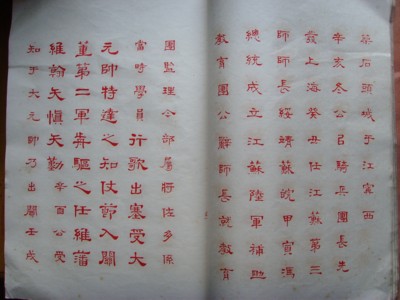 築石頭城于江寧西
辛亥冬公㠯騎兵團長先
發上海癸丑任江蘇第三
師師長綏靖蘇皖甲寅馮
總統成立江蘇陸軍補助
教育團公辭師長就教育
團監理今部屬將佐多係
當時學員 行歌出塞受大
元帥特達之知仗節入關
董第二軍犇驅之任維藩
維翰矢慎矢勤 辛酉公受
知于大元帥乃出關壬戌